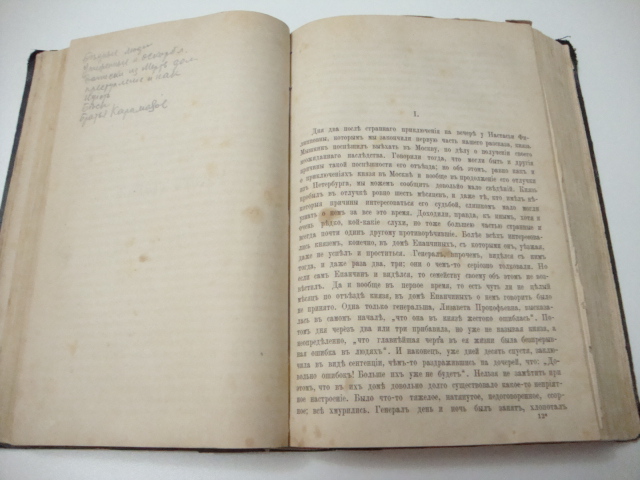 Бедные люди
Униженные и оскорбл.
Записки из Мертв. дома
преступление и нак.
Идиот
Бесы
Братья Карамазов
I.
Дня два послѣ страннаго приключенія на вечерѣ у Настасьи Фи-
липповны, которымъ мы закончили первую часть нашего разсказа, князь
Мышкинъ поспѣшилъ выѣхать въ Москву, по дѣлу о полученіи своего
неожиданнаго наслѣдства. Говорили тогда, что могли быть и другія
причины такой поспѣшности его отъѣзда; но объ этомъ, равно какъ и
о приключеніяхъ князя въ Москвѣ и вообще въ продолженіе его отлучки
изъ Петербурга, мы можемъ сообщить довольно мало свѣдѣній. Князь
пробылъ въ отлучкѣ ровно шесть мѣсяцевъ, и даже тѣ, кто имѣлъ нѣ-
которыя причины интересоваться его судьбой, слишкомъ мало могли
узнать о немъ за все это время. Доходили, правда, къ инымъ, хотя и
очень рѣдко, кой-какіе слухи, но тоже большею частью странные и
всегда почти одинъ другому противорѣчившіе. Болѣе всѣхъ интересова-
лись княземъ, конечно, въ домѣ Епанчиныхъ, съ которыми онъ, уѣзжая,
даже не успѣлъ и проститься. Генералъ, впрочемъ, видѣлся съ нимъ
тогда, и даже раза два, три; они о чемъ-то серіозно толковали. Но
если самъ Епанчинъ и видѣлся, то семейству своему объ этомъ не воз-
вѣстилъ. Да и вообще въ первое время, то есть чуть ли не цѣлый
мѣсяцъ по отъѣздѣ князя, въ домѣ Епанчиныхъ о немъ говорить было
не принято. Одна только генеральша, Лизавета Прокофьевна, высказа-
лась въ самомъ началѣ, „что она въ князѣ жестоко ошиблась“. По-
томъ дня черезъ два или три прибавила, но уже не называя князя, а
неопредѣленно, „что главнѣйшая черта въ ея жизни была безпрерыв-
ная ошибка въ людяхъ“. И наконецъ, уже дней десять спустя, заклю-
чила въ видѣ сентенціи, чѣмъ-то раздражившись на дочерей, что: „До-
вольно ошибокъ! Больше ихъ уже не будетъ“. Нельзя не замѣтить при
этомъ, что въ ихъ домѣ довольно долго существовало какое-то непріят-
ное настроеніе. Было что-то тяжелое, натянутое, недоговоренное, ссор-
ное; всѣ хмурились. Генералъ день и ночь былъ занятъ, хлопоталъ
12*